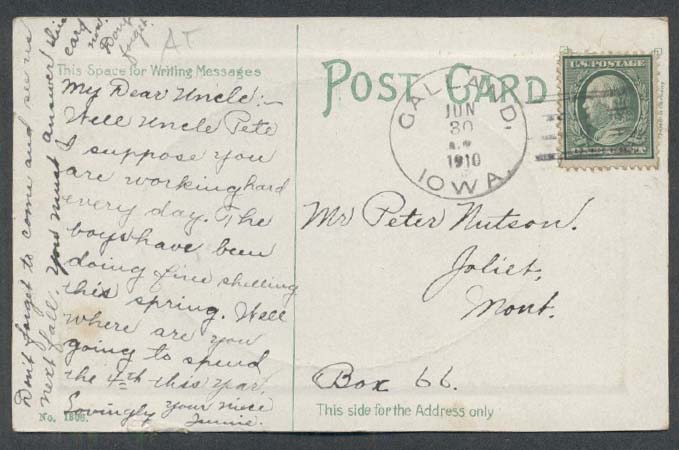 This Space for Writing Messages
My Dear Uncle:-
Well Uncle Pete
I suppose you
are working hard
every day. The
boys have been
doing fine shelling
this spring. Well
where are you
going to spend
the 4th this year.
Lovingly your niece
No. 1898.
Don't forget to come and see us
next fall. You must answer this
card
now.
Don't
forget.
AT
POST CARD
CALLAND.
JUN
30
1910
IOWA.
U.S. POSTAGE
Mr Peter Nutson.
Joliet,
Mont.
Box 66.
This side for the Address only